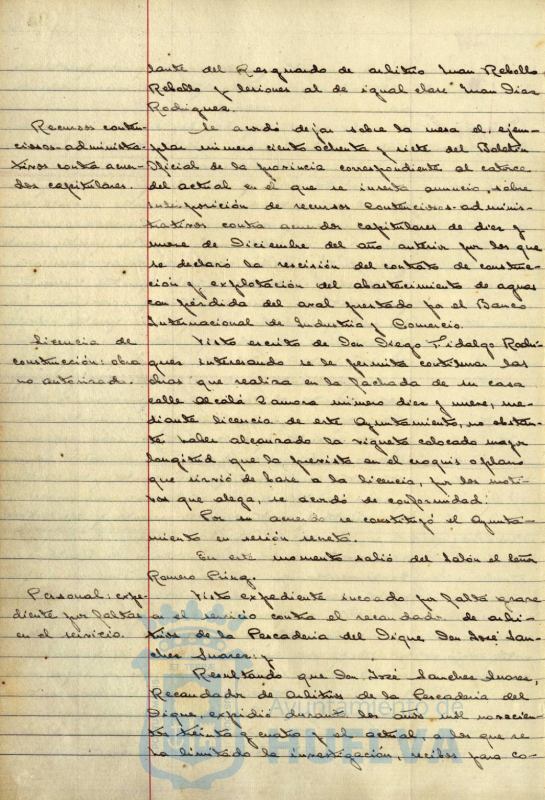 tante del Resguardo de arbitrio Juan Rebollo
Rebollo y lesiones al de igual clase Juan Diaz
Rodriguez.
Recursos conten-
ciosos-administra-
tivos contra acuer-
dos capitulares.
Se acordó dejar sobre la mesa el ejem-
plar número ciento ochenta y siete del Boletín
Oficial de la provincia correspondiente al catorce
del actual en el que se inserta anuncio, sobre
interposición de recursos Contenciosos-adminis-
trativos contra acuerdos capitulares de diez y
nueve de Diciembre del año anterior por los que
se declaró la rescisión del contrato de construc-
ción y explotación del abastecimiento de aguas
con pérdida del aval prestado por el Banco
Internacional de Industria y Comercio.
Licencia de
construcción: obra
no autorizada.
Visto escrito de Don Diego Fidalgo Rodri-
guez interesando se le permita continuar las
obras que realiza en la fachada de su casa
calle Alcalá Zamora número diez y nueve, me-
diante licencia de este Ayuntamiento, no obstan-
te haber alcanzado la vigueta colocada mayor
longitud que la prevista en el croquis o plano
que sirvió de base a la licencia, por los moti-
vos que alega, se acordó de conformidad.
Por su acuerdo se constituyó el Ayunta-
miento en sesión secreta.
En este momento salió del Salón el Señor
Romero
Personal: expe-
diente por faltas
en el servicio.
Visto expediente incoado por falta grave
en el servicio contra el recaudador de arbi-
trios de la Pescaderia del Dique, Don José San-
chez Suarez; y
Resultando que Don José Sanchez Suarez,
Recaudador de arbitrios de la Pescaderia del
Dique, expidió durante los años mil novecien-
tos treinta y cuatro y el actual, a los que se
ha limitado la investigación, recibos para co-
Ayuntamiento de
HUELVA